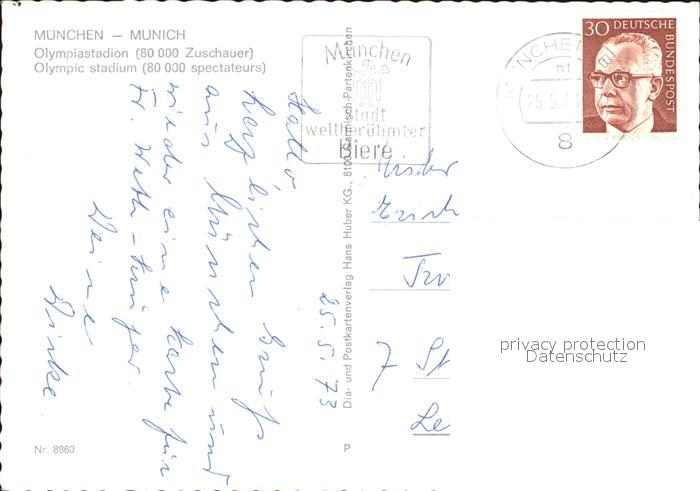 MÜNCHEN – MUNICH
Olympiastadion (80 000 Zuschauer)
Olympic stadium (80 000 spectateurs)
München
Stadt
weltberühmter
Biere
MÜNCHEN
25.5.73
8
30 DEUTSCHE
BUNDESPOST
25.5.73
Hallo
herzlichen Gruß
aus München und
wieder eine Karte für
Deine
Dia- und Postkartenverlag Hans Huber KG., 8100 Garmisch-Partenkirchen
Erich
7 St
Le
privacy protection
Datenschutz
Nr. 8960
P